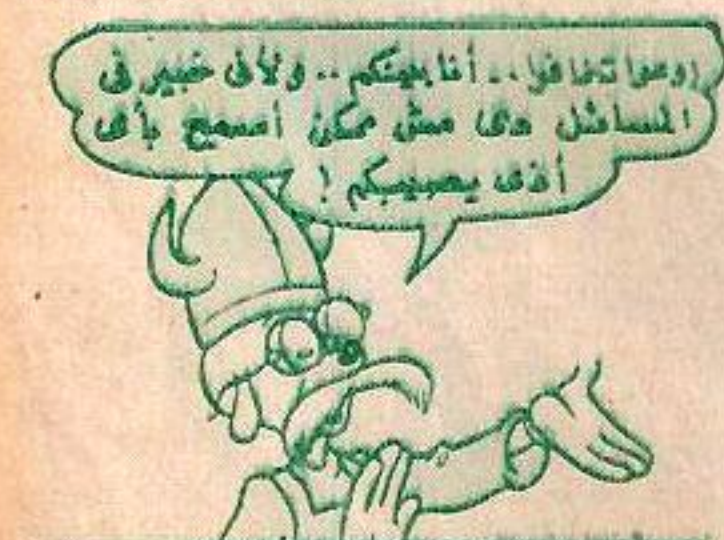 اوعوا تخافوا .. أنا بعينكم .. ولأنى خبير فى
المسائل دى مش ممكن أسمح بأى
أذى يصيبكم !